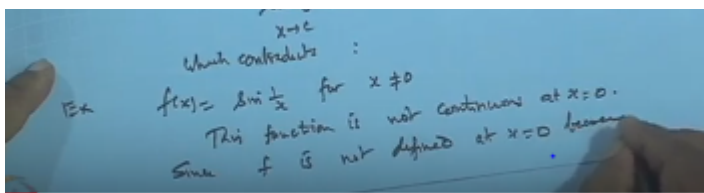 x→c
which contradicts :
Ex f(x) = sin 1/x for x ≠ 0
This function is not continuous at x=0.
Since f is not defined at x=0 because